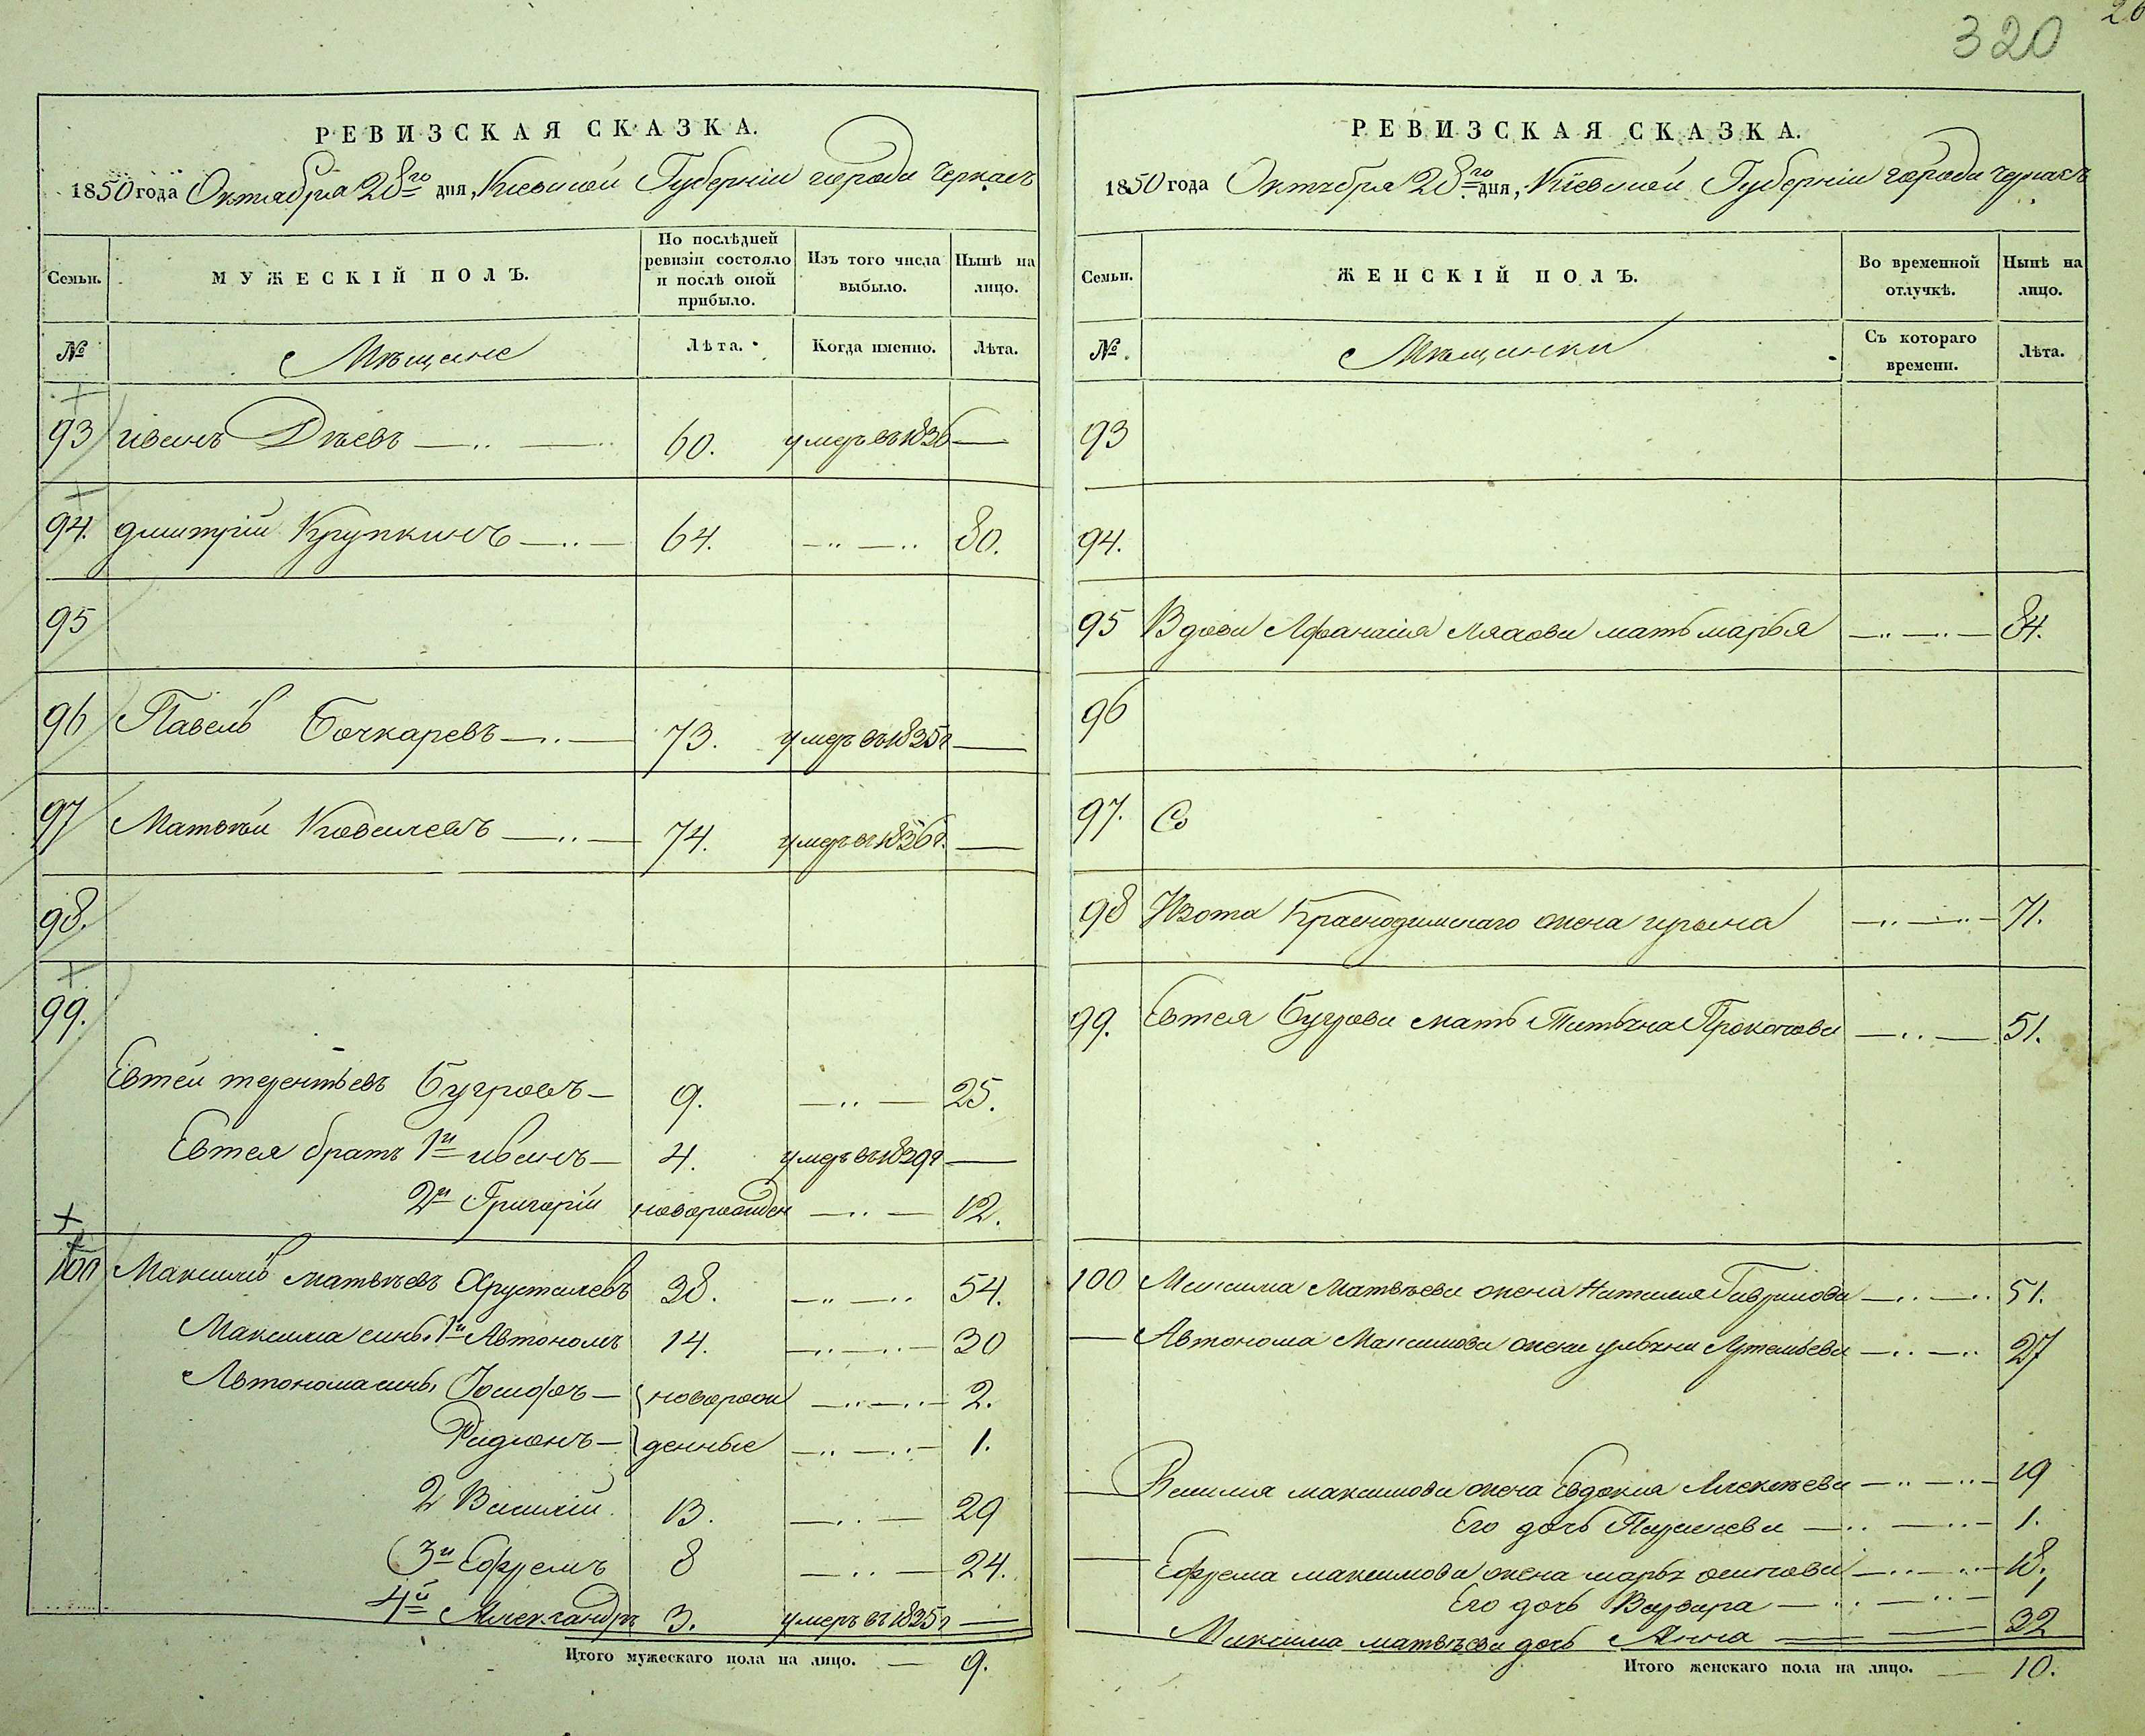 320
26
РЕВИЗСКАЯ СКАЗКА.
1850 года Октября 28го дня, Кіевской Губерніи города Черкасъ
Семьи.
МУЖЕСКІЙ ПОЛЪ.
По послѣдней ревизіи состояло и послѣ оной прибыло.
Изъ того числа выбыло.
Нынѣ на лицо.
№
Мѣщане
Лѣта.
Когда именно.
Лѣта.
93 иванъ Дѣевъ 60. умеръ въ 1836
94. дмитрій Крупкинъ 64. 80.
95
96 Павелъ Бочкаревъ 73. умеръ въ 1835г
97 Матвѣй Ковалевъ 74. умеръ въ 1836г.
98.
99.
Евтей терентьевъ Бугровъ 9. 25.
Евтея братъ 1й иванъ 4. умеръ въ 1839г
2й Григорій новорожден 12.
100 Максимъ матвѣевъ Хрусталевъ 38. 54.
Максима сынъ 1й Автономъ 14. 30
Автонома сынъ Іосифъ новорож 2.
Радионъ денные 1.
2 Василій 13. 29
3й Ефремъ 8 24.
4й Александръ 3. умеръ въ 1835г
Итого мужескаго пола на лицо. 9.
РЕВИЗСКАЯ СКАЗКА.
1850 года Октября 28го дня, Кіевской Губерніи города Черкасъ
Семьи.
ЖЕНСКІЙ ПОЛЪ.
Во временной отлучкѣ.
Нынѣ на лицо.
№.
Мѣщанки
Съ котораго времени.
Лѣта.
93
94.
95 Вдова Афанасія Ляхова мать марья 84.
96
97. Со
98 Изота жена ирына 71.
99. Евтея Бугрова мать Татьяна Прокопова 51.
100 Максима Матвѣева жена Наталія Гаврилова 51.
Автонома Максимова жена улььяна 27
Василія максимова жена Евдокія Алексѣева 19
Его дочь 1.
Ефрема максимова жена марья осипова 18.
Его дочь Варвара 1
Максима матвѣева дочь Анна 32
Итого женскаго пола на лицо. 10.